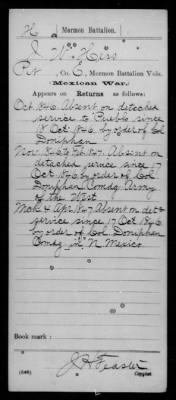 H | Mormon Battalion.
J. W. Hess
Pvt., Co. E, Mormon Battalion Vols.
(Mexican War.)
Appears on Returns as follows:
Oct. 1846, Absent on detached
service to Pueblo since
18 Oct. 1846, by order of Col
Doniphan
Nov. 1846 to Feb. 1847, Absent on
detached service since 17
Oct. 1846 by order of Col
Doniphan Comdg. Army
of the West
Mch & Apr. 1847 Absent on det
service since 17 Oct 1846
by order of Col. Doniphan
Comdg. in N. Mexico
Book mark:
(646)
J. H. Feaster
Copyist.